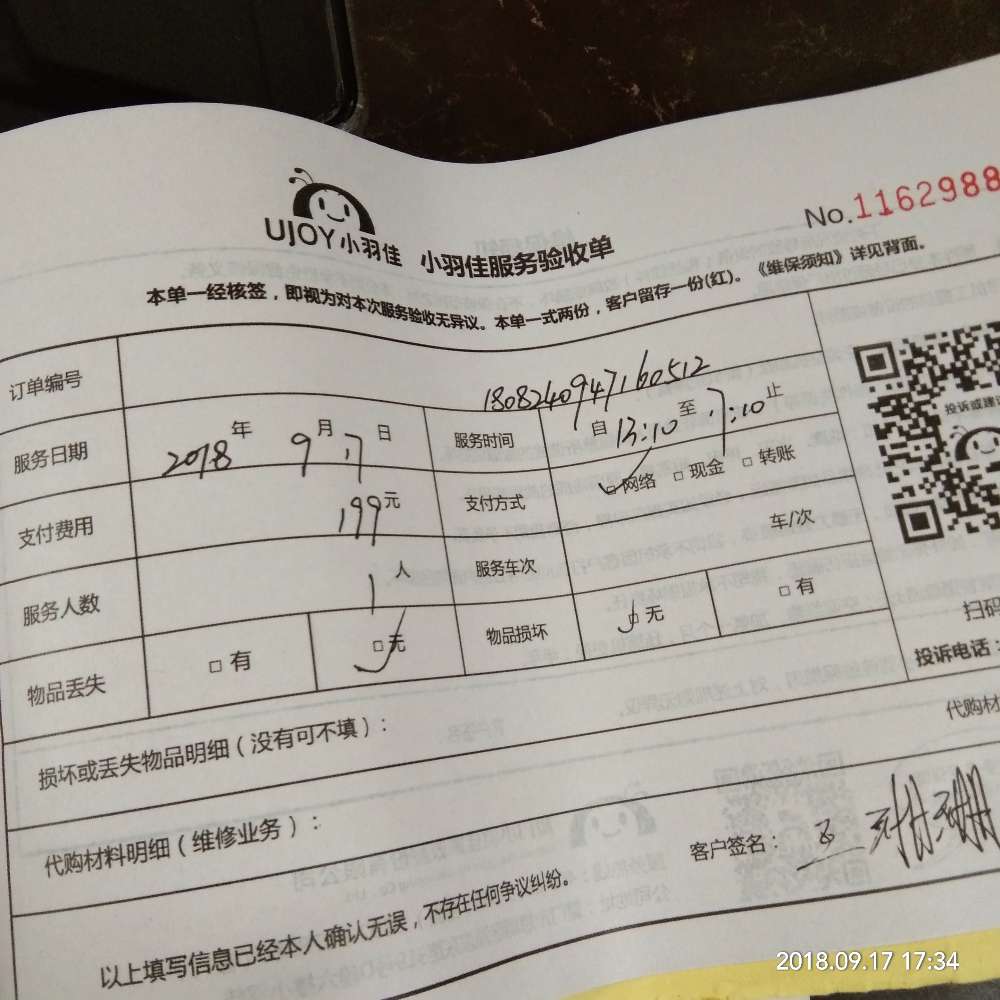 No.1162988
UJOY小羽佳 小羽佳服务验收单
本单一经核签，即视为对本次服务验收无异议。本单一式两份，客户留存一份(红)。《维保须知》详见背面。
订单编号 1808240947160512
服务日期 2018年 9月17日 服务时间 自13:10至17:10止
支付费用 199元 支付方式 □网络 □现金 □转账
服务人数 1人 服务车次 车/次
物品丢失 □有 □无 物品损坏 □无 □有
投诉或建
扫码
投诉电话：
损坏或丢失物品明细(没有可不填)：
代购材
代购材料明细(维修业务)：
客户签名：
以上填写信息已经本人确认无误，不存在任何争议纠纷。
2018.09.17 17:34